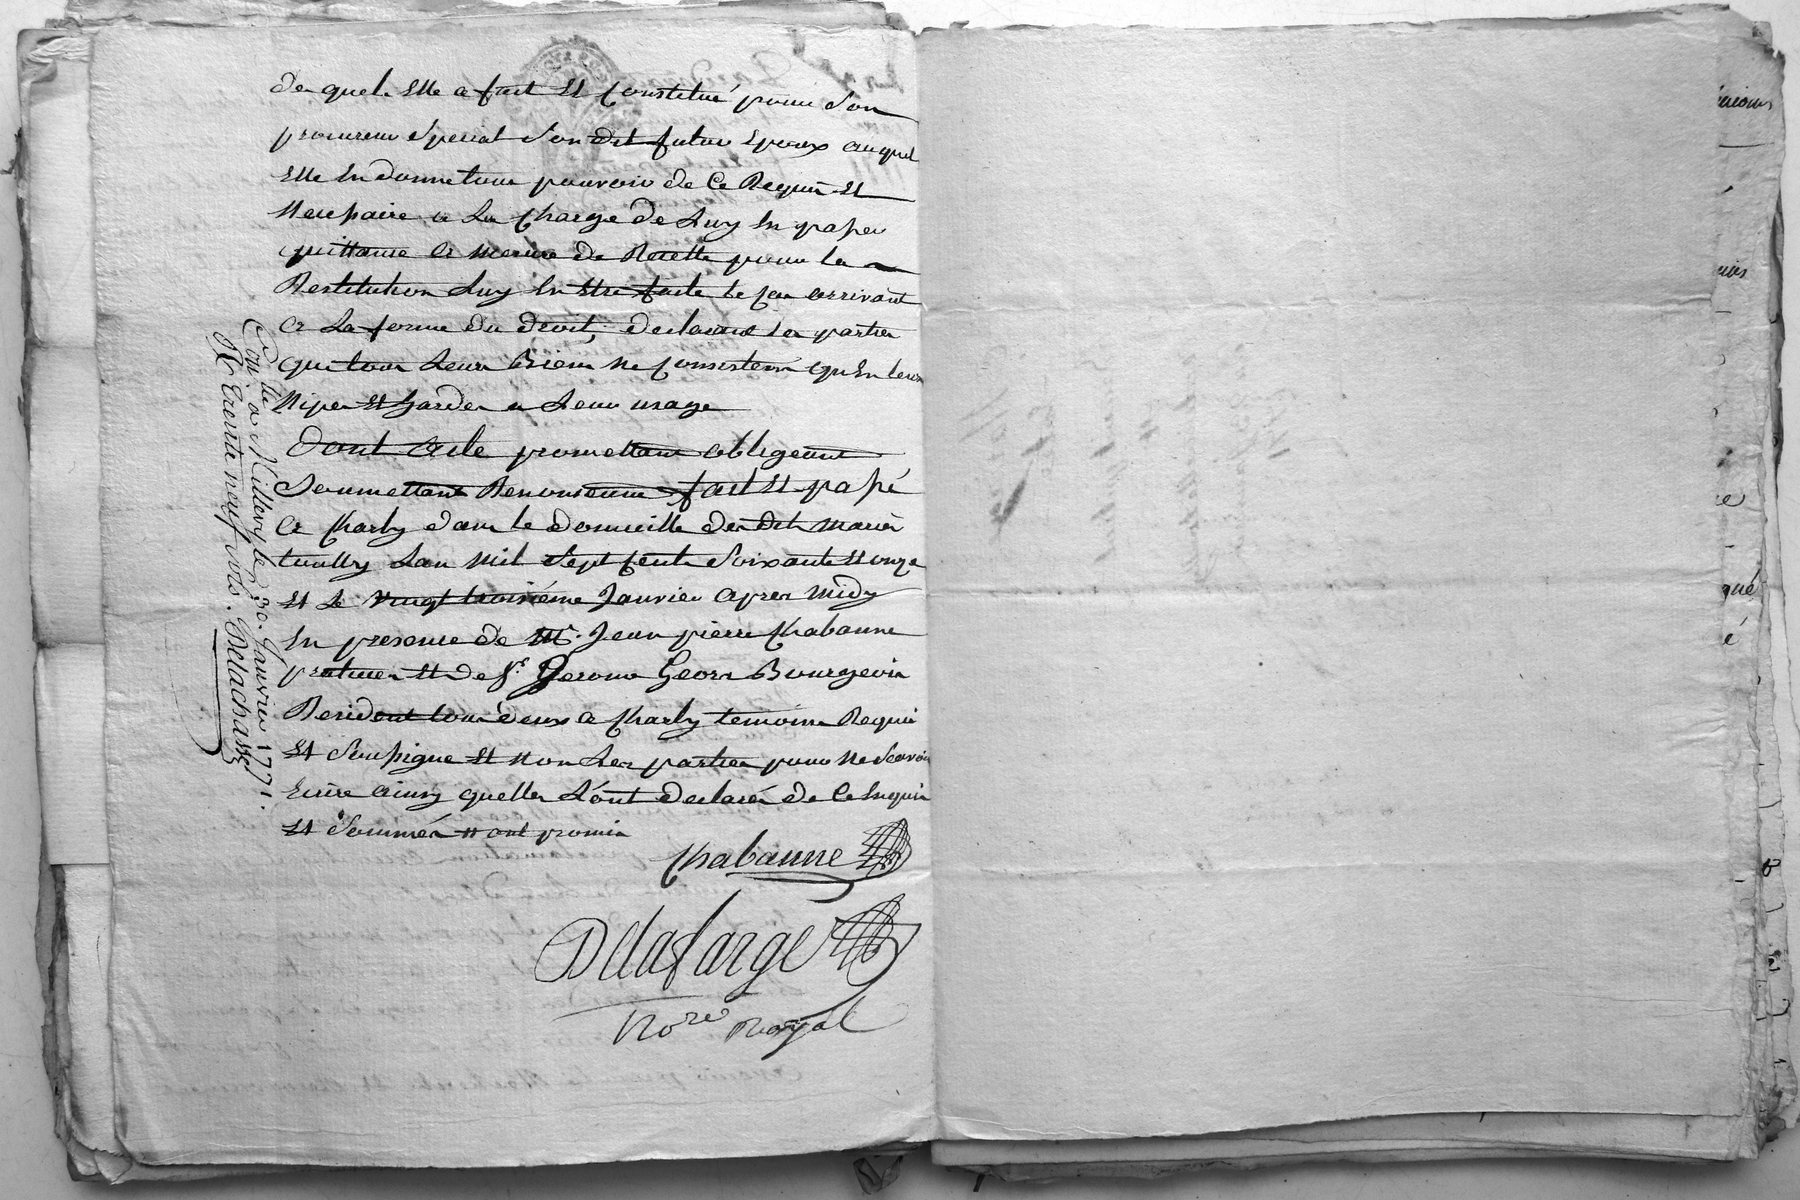 de quel. Elle a fait Et Constitué pour Son
procureur Special Son dit futur Epoux auquel
Elle En donne tour pouvoir de Ce Requis Et
Necessaire a La Charge de Luy En passer
quittance a mesure de Recette pour la
Restitution Luy En Etre faite le Cas arrivant
a La forme du droit, declarant les parties
que tous Leurs Biens ne Consistent qu'En leurs
Nipes Et hardes a Leur usage
Dont acte promettant obligeant
Soumettant Renonceant fait Et passé
a Charly dans le domicille des dits mariés
L'an Mil Sept Cents Soixante Et onze
Et Le vingt troisième Janvier apres Midy
En presence de Mr. Jean pierre Chabanne
praticien Et de Sr. Gerome Geors Bourgeois
Residant tous deux a Charly temoins Requis
Et Soussigne Et non Les parties pour ne Scavoir
Ecrire ainsy quelles L'ont declaré de Ce Enquis
Et Sommés Et ont promis
Chabanne
Delafarge
Nore Royal
Con. lé a Millery le 30. Janvier 1771.
R. trente neuf sols. Delachassel